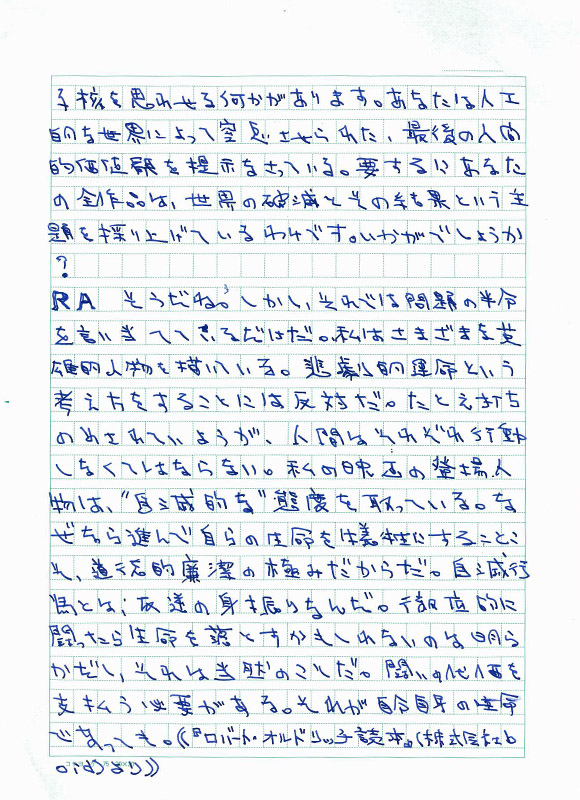 子核を思わせる何かがあります。あなたは人工
的な世界によって窒息させられた、最後の人間
的価値観を提示なさっている。要するにあなた
の全作品は、世界の破滅とその結果という主
題を採り上げているわけです。いかがでしょうか
?
RA そうだね。しかし、それでは問題の半分
を言い当ててきるだけだ。私はさまざまな英
雄的人物を描いている。悲劇的運命という
考え方をすることには反対だ。たとえ打ち
のめされていようが、人間はそれぞれ行動
しなくてはならない。私の映画の登場人
物は、“自滅的な”態度を取っている。な
ぜなら進んで自らの生命を犠牲にすることこ
そ、道徳的廉潔の極みだからだ。自滅行
為とは、反逆の身振りなんだ。徹底的に
闘ったら生命を落とすかもしれないのは明ら
かだし、それは当然のことだ。闘いの代価を
支払う必要がある。それが自分自身の生命
であっても。((『ロバート・オルドリッチ読本』(株式会社b
oidより))